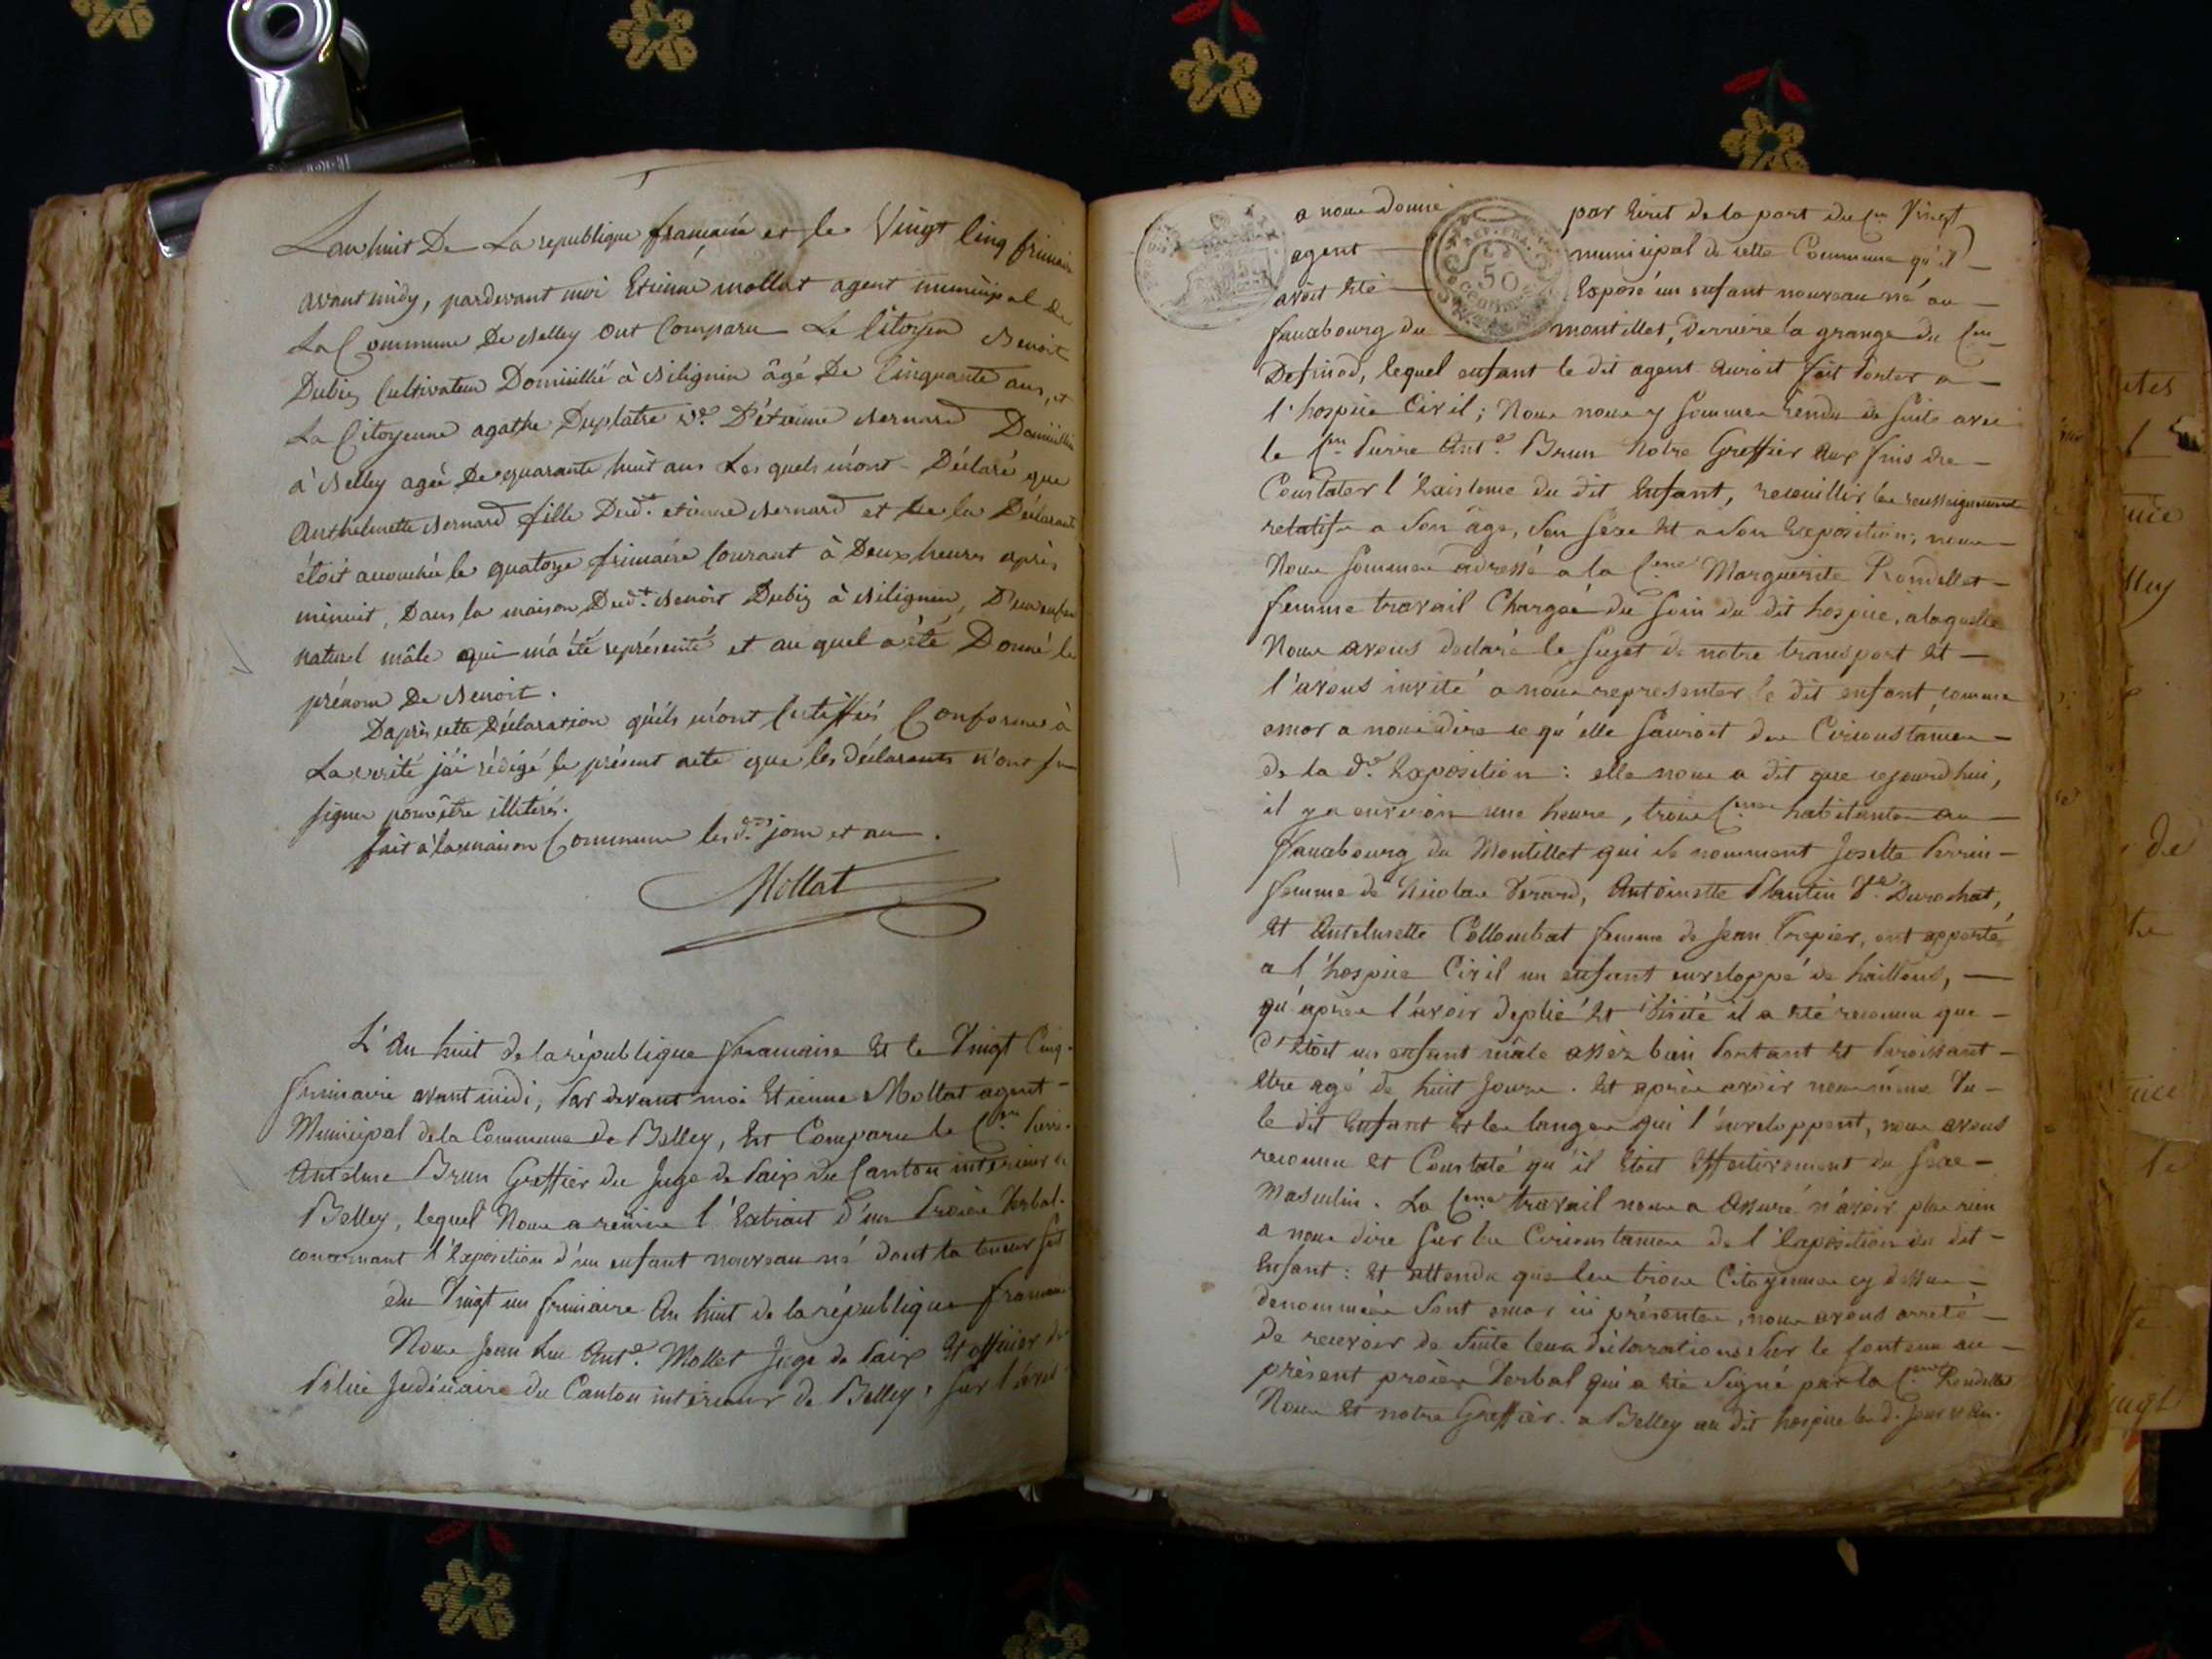 L'an huit De La republique française et le Vingt Cinq frimaire
avant midy, pardevant moi Etienne mollat agent municipal de
La Commune De Belley ont Comparu Le Citoyen Benoit
Dubiez Cultivateur Domicilié à Bilignin âgé De Cinquante ans, et
La Citoyenne agathe Duplatre ve. D'étienne Bernard Domiciliée
à Belley agée De quarante huit ans Les quels m'ont Déclaré que
Anthelmette Bernard fille Dud.t etienne Bernard et De la Déclarante
étoit accouchée le quatorze frimaire Courant à Deux heures après
minuit, Dans la maison Dud.t Benoit Dubiez à Bilignin, D'un enfant
naturel mâle qui m'a été représenté et au quel a été Donné le
prénom De Benoit.
Daprès cette Déclaration qu'ils m'ont Certiffiés Conforme à
La vérité j'ai rédigé le présent acte que les déclarants n'ont su
signer pour être illiterés.
fait à la maison Commune les d. jour et an.
Mollat
L'An huit de la république francaise Et le Vingt Cinq
frimaire avant midi, Par devant moi Etienne Mollat agent
Municipal de la Commune de Belley, Est Comparu le C.en Pierre
Antelme Brun Greffier du Juge de Paix du Canton intérieur de
Belley, lequel Nous a remis l'Extrait d'un Procès Verbal
concernant l'Exposition d'un enfant nouveau né dont la teneur suit
du Vingt un frimaire An huit de la république francaise
Nous Jean Luc Ant.e Mollet Juge de Paix Et officier de
Police Judiciaire du Canton intérieur de Belley, sur l'avis
a nous donné par Ecrit de la part du C.en Vingt
agent municipal de cette Commune qu'il
avoit Eté Exposé un enfant nouveau né au
fauxbourg du montillet, derriere la grange du C.en
Definod, lequel enfant le dit agent auroit fait Porter a
l'hospice Civil; Nous nous y sommes rendu de suite avec
le C.en Pierre Ant.e Brun Notre Greffier Aux fins de
Constater l'Existence du dit Enfant, recueillir les renseignements
relatifs a son âge, son sexe Et a son Exposition; nous
Nous sommes adressé a la C.enne Marguerite Rondellet
femme travail Chargée du soin du dit hospice, a laquelle
Nous avons declaré le sujet de notre transport Et
l'avons invité a nous representer le dit enfant, comme
encor a nous dire ce qu'elle sauroit des Circonstances
de la d.e Exposition: elle nous a dit que cejourd'hui,
il y a environ une heure, trois C.ennes habitantes au
fauxbourg du Montillet qui se nomment Josette Perrin
femme de Nicolas Verard, Antoinette Plantin V.e Durochat,
Et Antelmette Collombat femme de Jean Trepier, ont apporté
a l'hospice Civil un enfant enveloppé de haillons,
qu'après l'avoir deplié Et visité il a été reconnu que
C'Etoit un enfant mâle assez bien Portant Et Paroissant
Etre agé de huit Jours. Et après avoir nous même Vu
le dit Enfant Et les langes qui l'enveloppent, nous avons
reconnu Et Constaté qu'il Etoit Effectivement du sexe
Masculin. La C.enne travail nous a Assuré n'avoir plus rien
a nous dire sur les Circonstances de l'Exposition du dit
Enfant: Et attendu que les trois Citoyennes cy dessus
denommées sont encor ici présentes, nous avons arreté
de recevoir de suite leurs déclarations sur le Contenu au
présent procès Verbal qui a été signé par la C.enne Rondellet
Nous Et notre Greffier. a Belley au dit hospice les d. Jour Et An.
REP. FRA.
50
CENTIMES